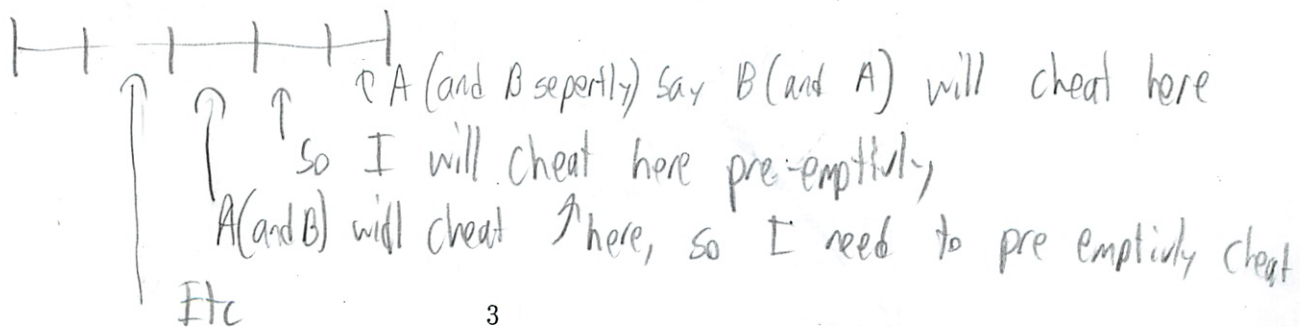 A (and B sepertly) say B (and A) will cheat here
So I will cheat here pre-emptivly
A(and B) will cheat ↑ here, so I need to pre emptivly cheat
Etc
3